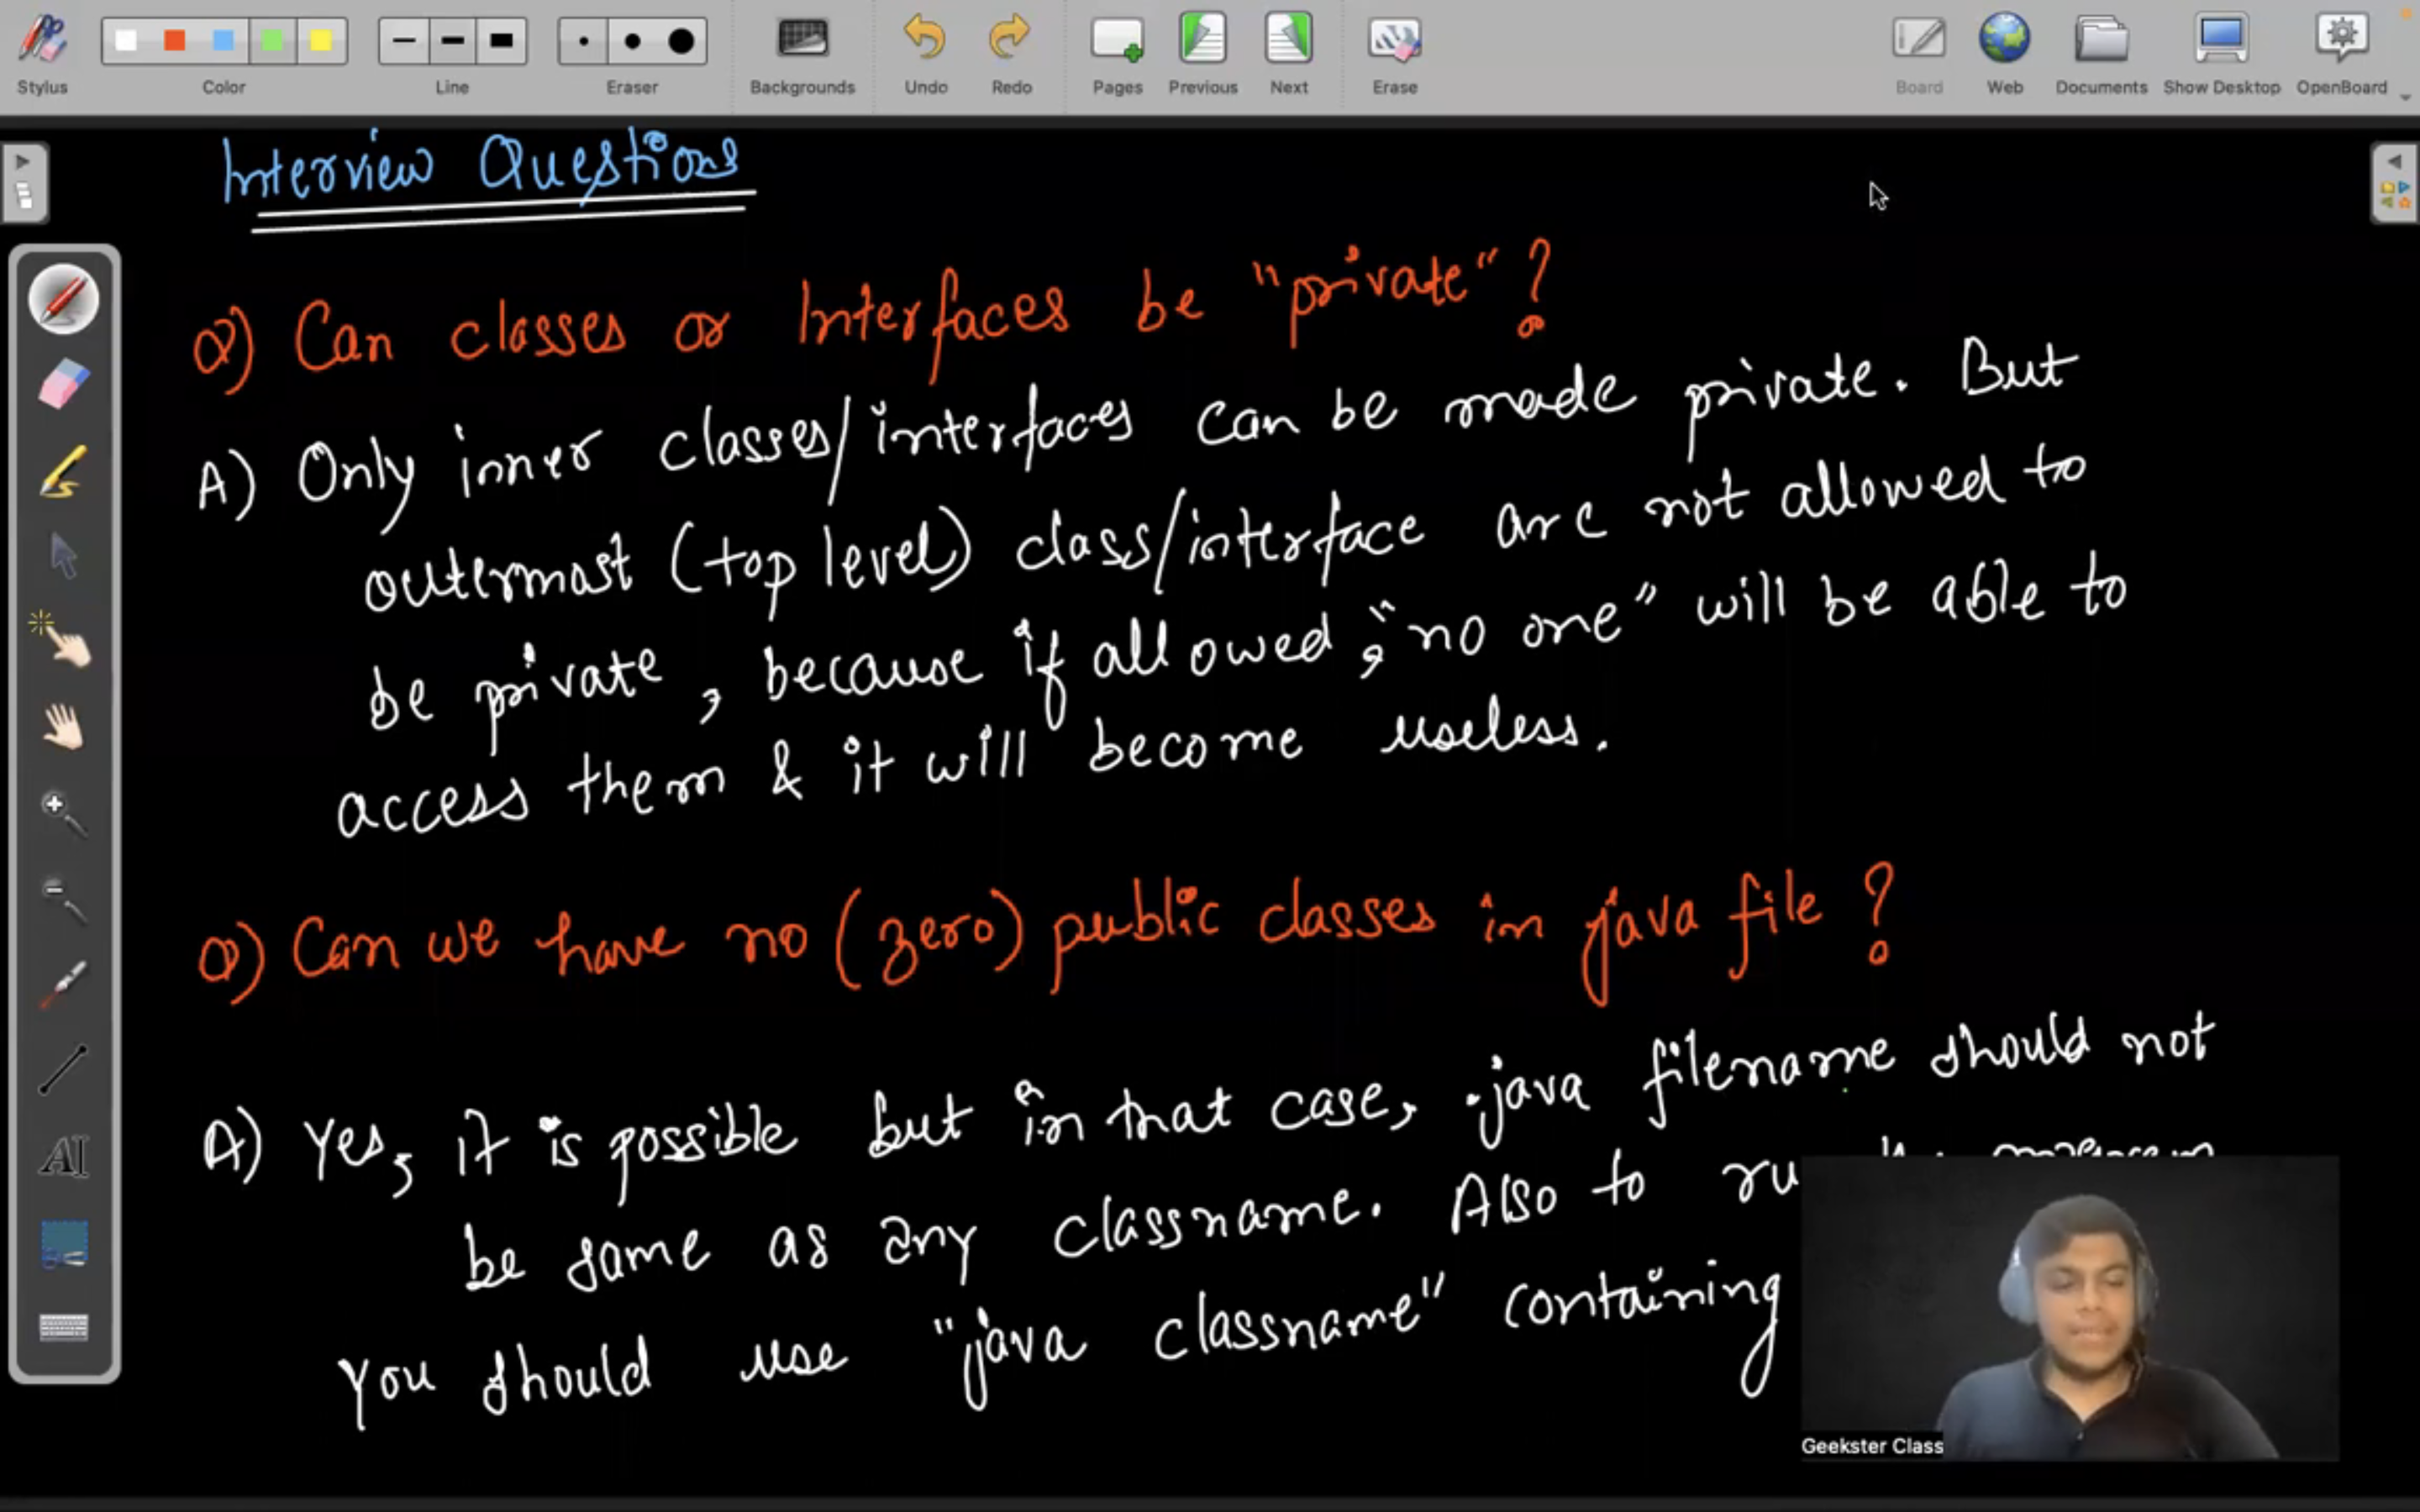 Stylus
Color
Line
Eraser
Backgrounds
Undo
Redo
Pages
Previous
Next
Erase
Board
Web
Documents
Show Desktop
OpenBoard
Interview Questions
Q) Can classes or Interfaces be "private"?
A) Only inner classes/interfaces can be made private. But
outermost (top level) class/interface are not allowed to
be private, because if allowed, "no one" will be able to
access them & it will become useless.
Q) Can we have no (zero) public classes in java file?
A) Yes, it is possible but in that case, .java filename should not
be same as any classname. Also to
you should use "java classname" containing
AI
Geekster Class